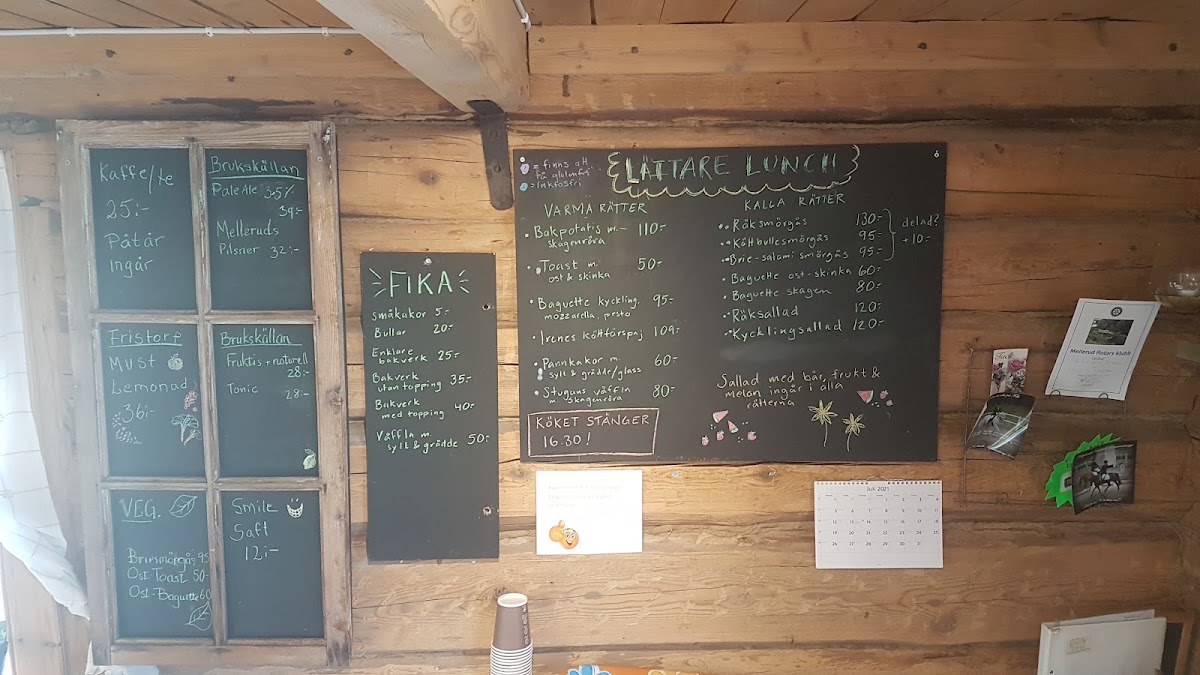 Kaffe/te
25:-
Påtår
Ingår
Brukskällan
Pale Ale 3.5%
39:-
Melleruds
Pilsner 32:-
Fristorp
Must
Lemonad
36:-
Brukskällan
Fruktis + naturell
28:-
Tonic 28:-
VEG.
Briesmörgås 95
Ost Toast 50:-
Ost-Baguette 60
Smile
Saft
12:-
FIKA
Småkakor 5:-
Bullar 20:-
Enklare
bakverk 25:-
Bakverk
utan topping 35:-
Bakverk
med topping 40:-
Våffla m.
sylt & grädde 50:-
= finns att
få glutenfri
= laktosfri
LÄTTARE LUNCH
VARMA RÄTTER
Bakpotatis m. 110:-
skagenröra
Toast m. 50:-
ost & skinka
Baguette kyckling. 95:-
mozzarella, pesto
Irenes köttfärspaj 109:-
Pannkakor m. 60:-
sylt & grädde/glass
Stugans våffla 80:-
m. skagenröra
KÖKET STÄNGER
16.30!
KALLA RÄTTER
Räksmörgås 130:-
Köttbullesmörgås 95:-
Brie-salami smörgås 95:-
delad?
+10:-
Baguette ost-skinka 60:-
Baguette skagen 80:-
Räksallad 120:-
Kycklingsallad 120:-
Sallad med bär, frukt &
melon ingår i alla
rätterna
Juli 2021
Mellerud Rotary klubb